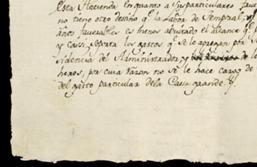 Esta Hacienda en quanto a sus particulares
no tiene otro destino q.e la labor de temporal,
años favorables es menos abultado el alcance q.e p
y cassi soporta los gastos q.e se le agregan por
sidencia del Administrador, y
heros, por cuia razon no se le hace cargo de
del gasto particular dela Cassa grande.